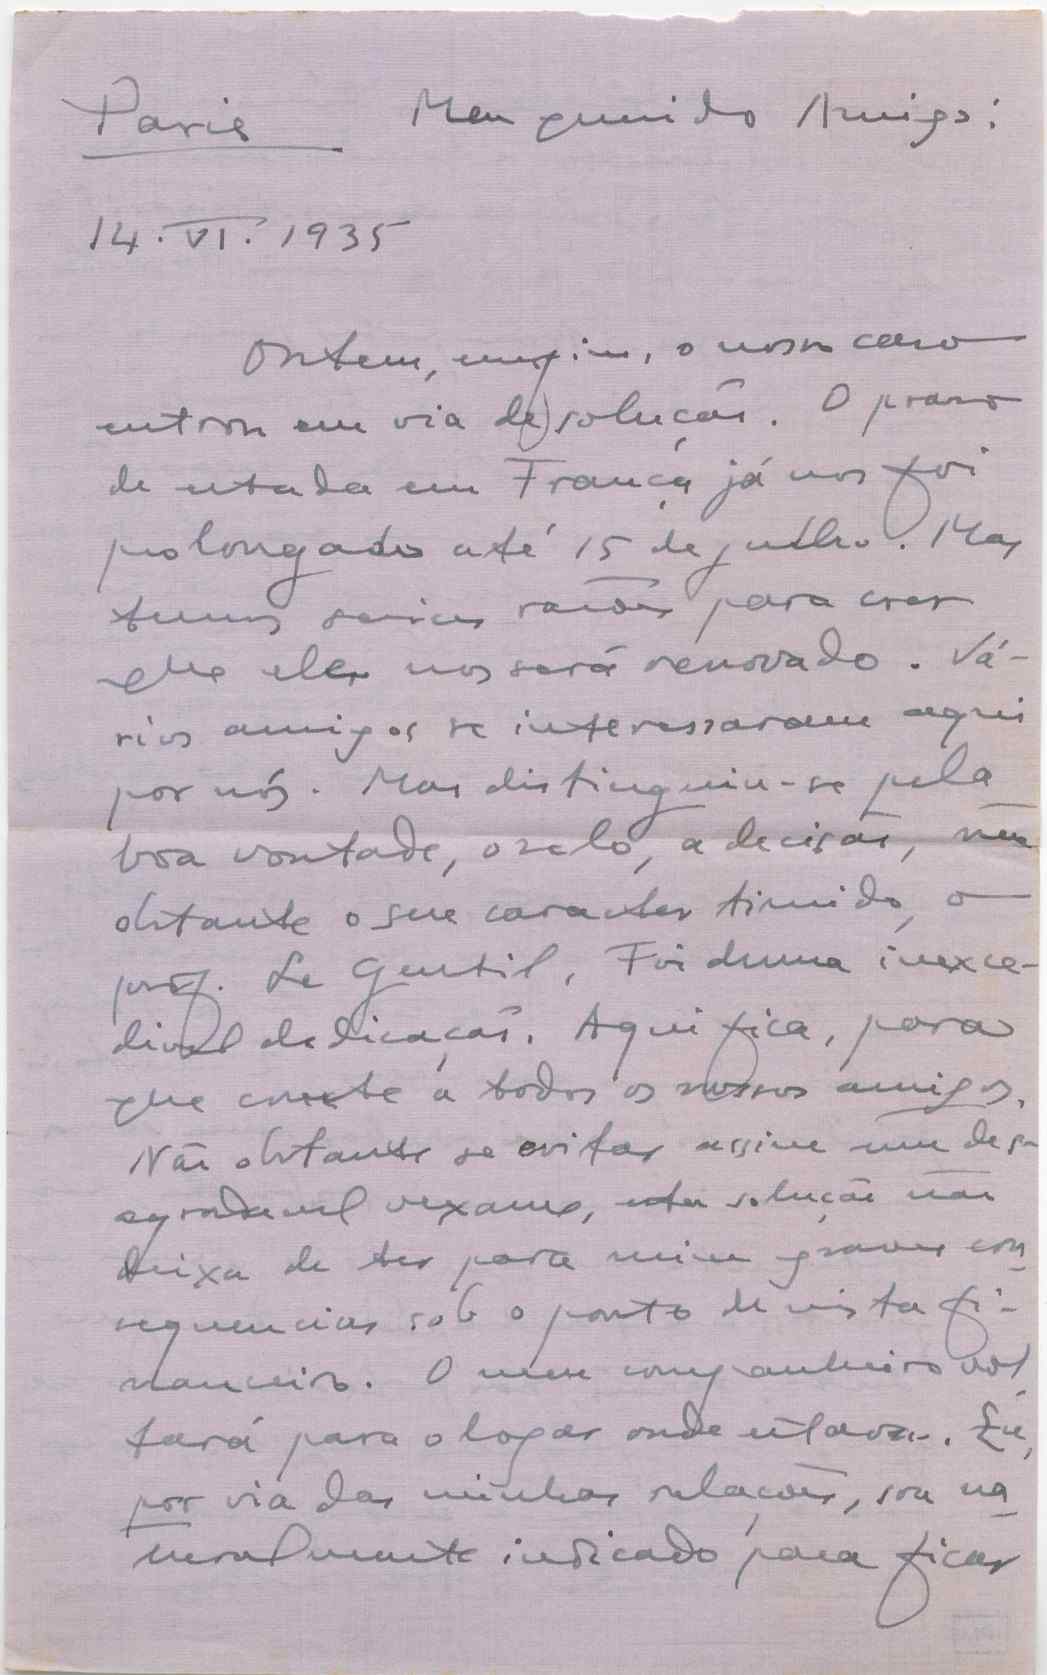 Paris Meu querido Amigo:
14. VI. 1935
Ontem, emfim, o nosso caso
entrou em via de solução. O praso
de estada em França já nos foi
prolongado até 15 de julho. Mas
temos serias razões para crer
que ele nos será renovado. Vá-
rios amigos se interessaram aqui
por nós. Mas distinguiu-se pela
boa vontade, o zelo, a decisão, não
obstante o seu caracter timido, o
prof. Le Gentil, Foi duma inexce-
divel dedicação. Aqui fica, para
que conste a todos os nossos amigos.
Não obstante se evitar assim um desa-
agradavel vexame, esta solução não
deixa de ter para mim graves con-
sequencias sob o ponto de vista fi-
nanceiro. O meu companheiro vol-
tará para o logar onde estava. Eu,
por via das minhas relações, sou na-
turalmente indicado para ficar